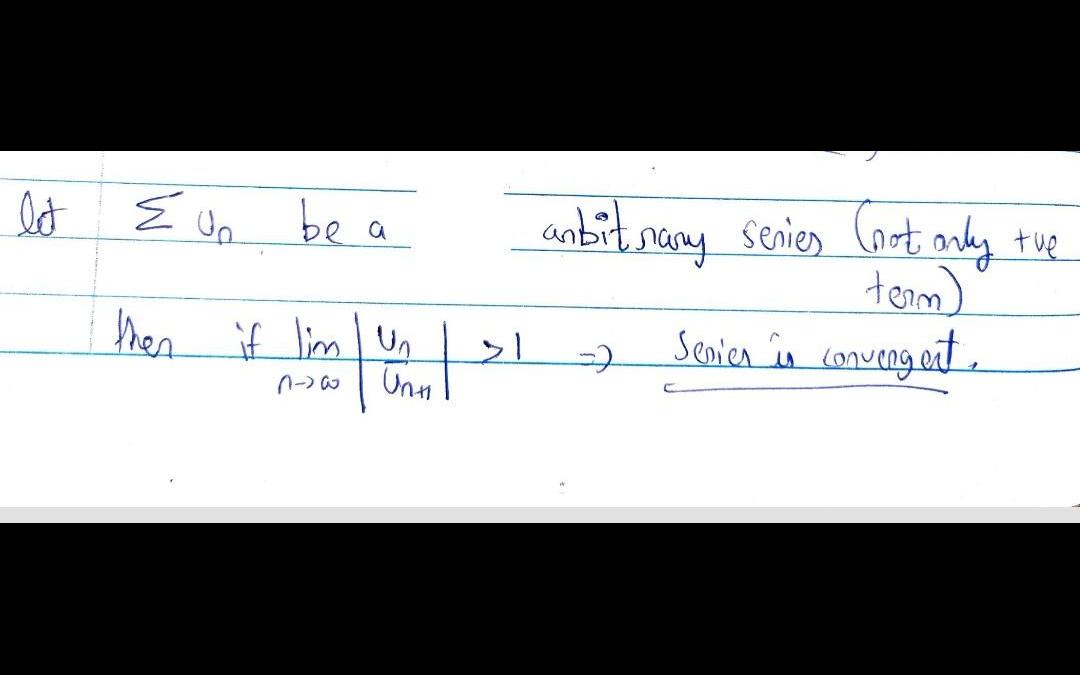 let Σ Un be a arbitrary series (not only +ve
term)
then if lim n→∞ |Un/Un+1| >1 => Series is convergent.